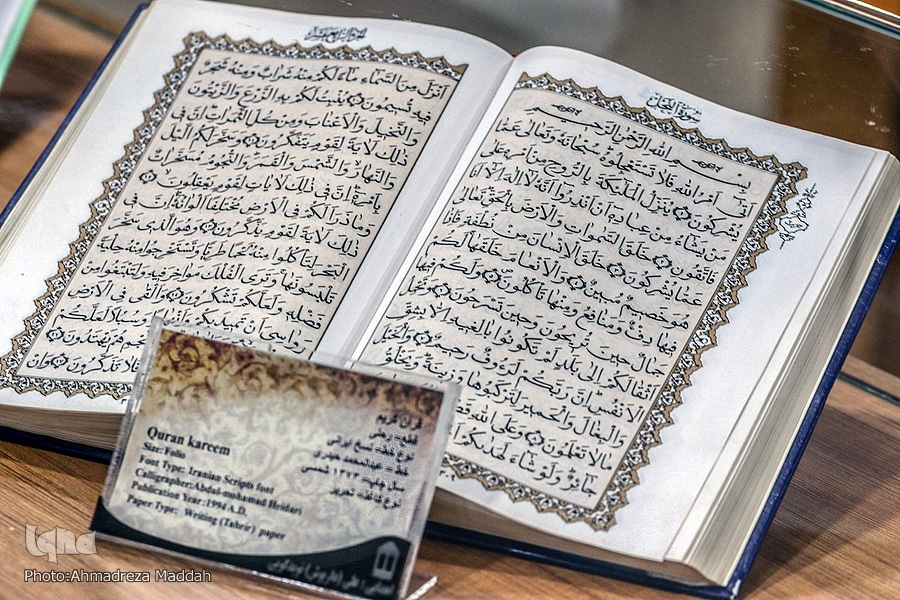 سورة النحل
بسم الله الرحمن الرحيم
أتى أمر الله فلا تستعجلوه سبحانه وتعالى عما
يشركون ينزل الملائكة بالروح من أمره على
من يشاء من عباده أن أنذروا أنه لا إله إلا أنا
فاتقون خلق السموات والأرض بالحق تعالى
عما يشركون خلق الإنسان من نطفة فإذا
هو خصيم مبين والأنعام خلقها لكم
فيها دفء ومنافع ومنها تأكلون ولكم فيها
جمال حين تريحون وحين تسرحون وتحمل
أثقالكم إلى بلد لم تكونوا بالغيه إلا بشق
الأنفس إن ربكم لرؤف رحيم والخيل
والبغال والحمير لتركبوها وزينة ويخلق
ما لا تعلمون وعلى الله
جائر ولو شاء لهديكم
أنزل من السماء ماء لكم منه شراب ومنه شجر
فيه تسيمون ينبت لكم به الزرع والزيتون
والنخيل والأعناب ومن كل الثمرات إن في
ذلك لآية لقوم يتفكرون وسخر لكم الليل
والنهار والشمس والقمر والنجوم مسخرات
بأمره إن في ذلك لآيات لقوم يعقلون
وما ذرأ لكم في الأرض مختلفا ألوانه إن في
ذلك لآية لقوم يذكرون وهو الذي سخر
البحر لتأكلوا منه لحما طريا وتستخرجوا منه حلية
تلبسونها وترى الفلك مواخر فيه ولتبتغوا من
فضله ولعلكم تشكرون وألقى في الأرض
رواسي أن تميد بكم وسبلا لعلكم
هم يهتدون
تذكرون وإن
قرآن کریم
قطع: رحلی
نوع خط: نسخ ایرانی
خط: عبدالمحمد حیدری
سال چاپ: ۱۳۷۳ شمسی
نوع کاغذ: تحریر
Quran kareem
Size: Folio
Font Type: Iranian Scripts font
Calligrapher: Abdul-mohamad Heidari
Publication Year: 1994 A.D.
Paper Type: Writing (Tahrir) paper
iqna
Photo:Ahmadreza Maddah